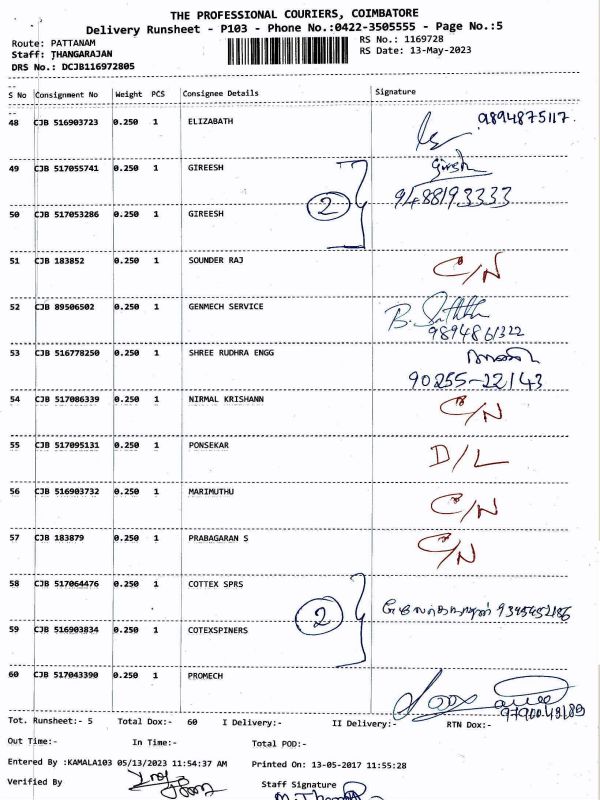 THE PROFESSIONAL COURIERS, COIMBATORE
Delivery Runsheet - P103 - Phone No.:0422-3505555 - Page No.:5
Route: PATTANAM RS No.: 1169728
Staff: THANGARAJAN RS Date: 13-May-2023
DRS No.: DCJB116972805
S No Consignment No Weight PCS Consignee Details Signature
48 CJB 516903723 0.250 1 ELIZABATH 9894875117
49 CJB 517055741 0.250 1 GIREESH Girish
50 CJB 517053286 0.250 1 GIREESH 2 9488193333
51 CJB 183852 0.250 1 SOUNDER RAJ C/N
52 CJB 89506502 0.250 1 GENMECH SERVICE B.
9894861322
53 CJB 516778250 0.250 1 SHREE RUDHRA ENGG
90255-22143
54 CJB 517086339 0.250 1 NIRMAL KRISHANN C/N
55 CJB 517095131 0.250 1 PONSEKAR D/L
56 CJB 516903732 0.250 1 MARIMUTHU C/N
57 CJB 183879 0.250 1 PRABAGARAN S C/N
58 CJB 517064476 0.250 1 COTTEX SPRS
2 9345452186
59 CJB 516903834 0.250 1 COTEXSPINERS
60 CJB 517043390 0.250 1 PROMECH
Tot. Runsheet:- 5 Total Dox:- 60 I Delivery:- II Delivery:- RTN Dox:-
Out Time:- In Time:- Total POD:-
Entered By :KAMALA103 05/13/2023 11:54:37 AM Printed On: 13-05-2017 11:55:28
Verified By Staff Signature